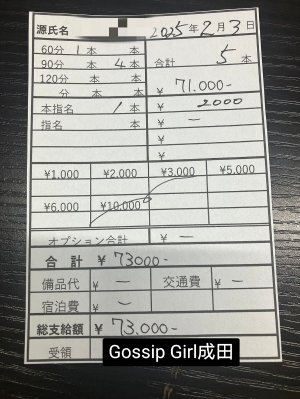 源氏名 2025年2月3日
60分 1本 本 合計 5本
90分 本 4本
120分 本 本 ¥ 71.000-
分 本 本
本指名 1本 ¥ 2000
指名 本 ¥ ー
¥
¥
¥1.000 ¥2,000 ¥3,000 ¥5,000
¥6.000 ¥10,000
オプション合計 ¥ ー
合計 ¥ 73000-
備品代 ¥ ー 交通費 ¥ ー
宿泊費 ¥ ー
総支給額 ¥ 73.000-
受領
Gossip Girl成田